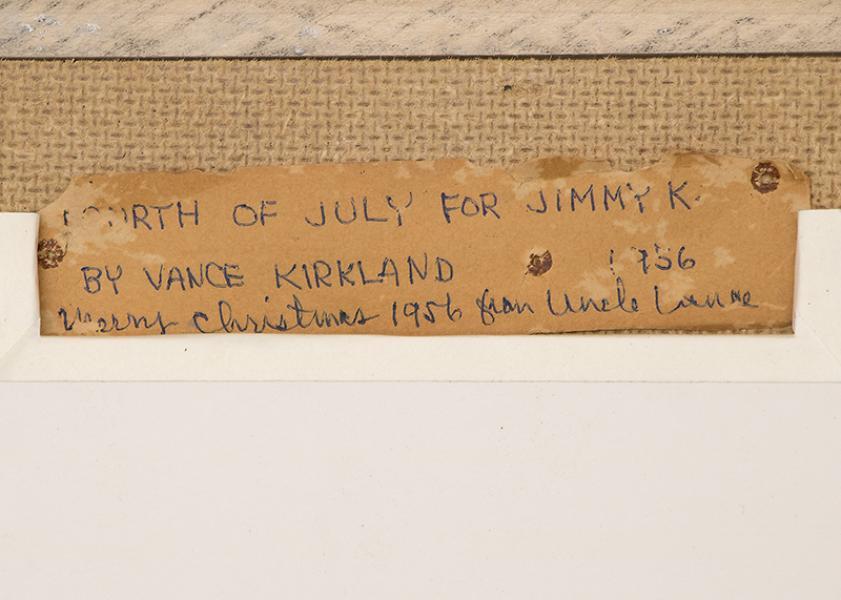 FOURTH OF JULY FOR JIMMY K.
BY VANCE KIRKLAND 1956
Merry Christmas 1956 from Uncle Vance